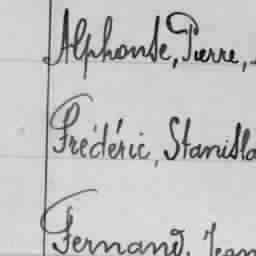 Alphonse, Pierre,
Frédéric, Stanisla
Fernand, Jean